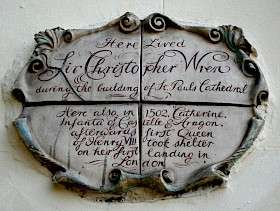 Here Lived
Sir Christopher Wren
during the building of St. Pauls Cathedral.
Here also, in 1502, Catherine,
Infanta of Castille & Aragon,
afterwards first Queen
of Henry VIII took shelter
on her first landing in
London